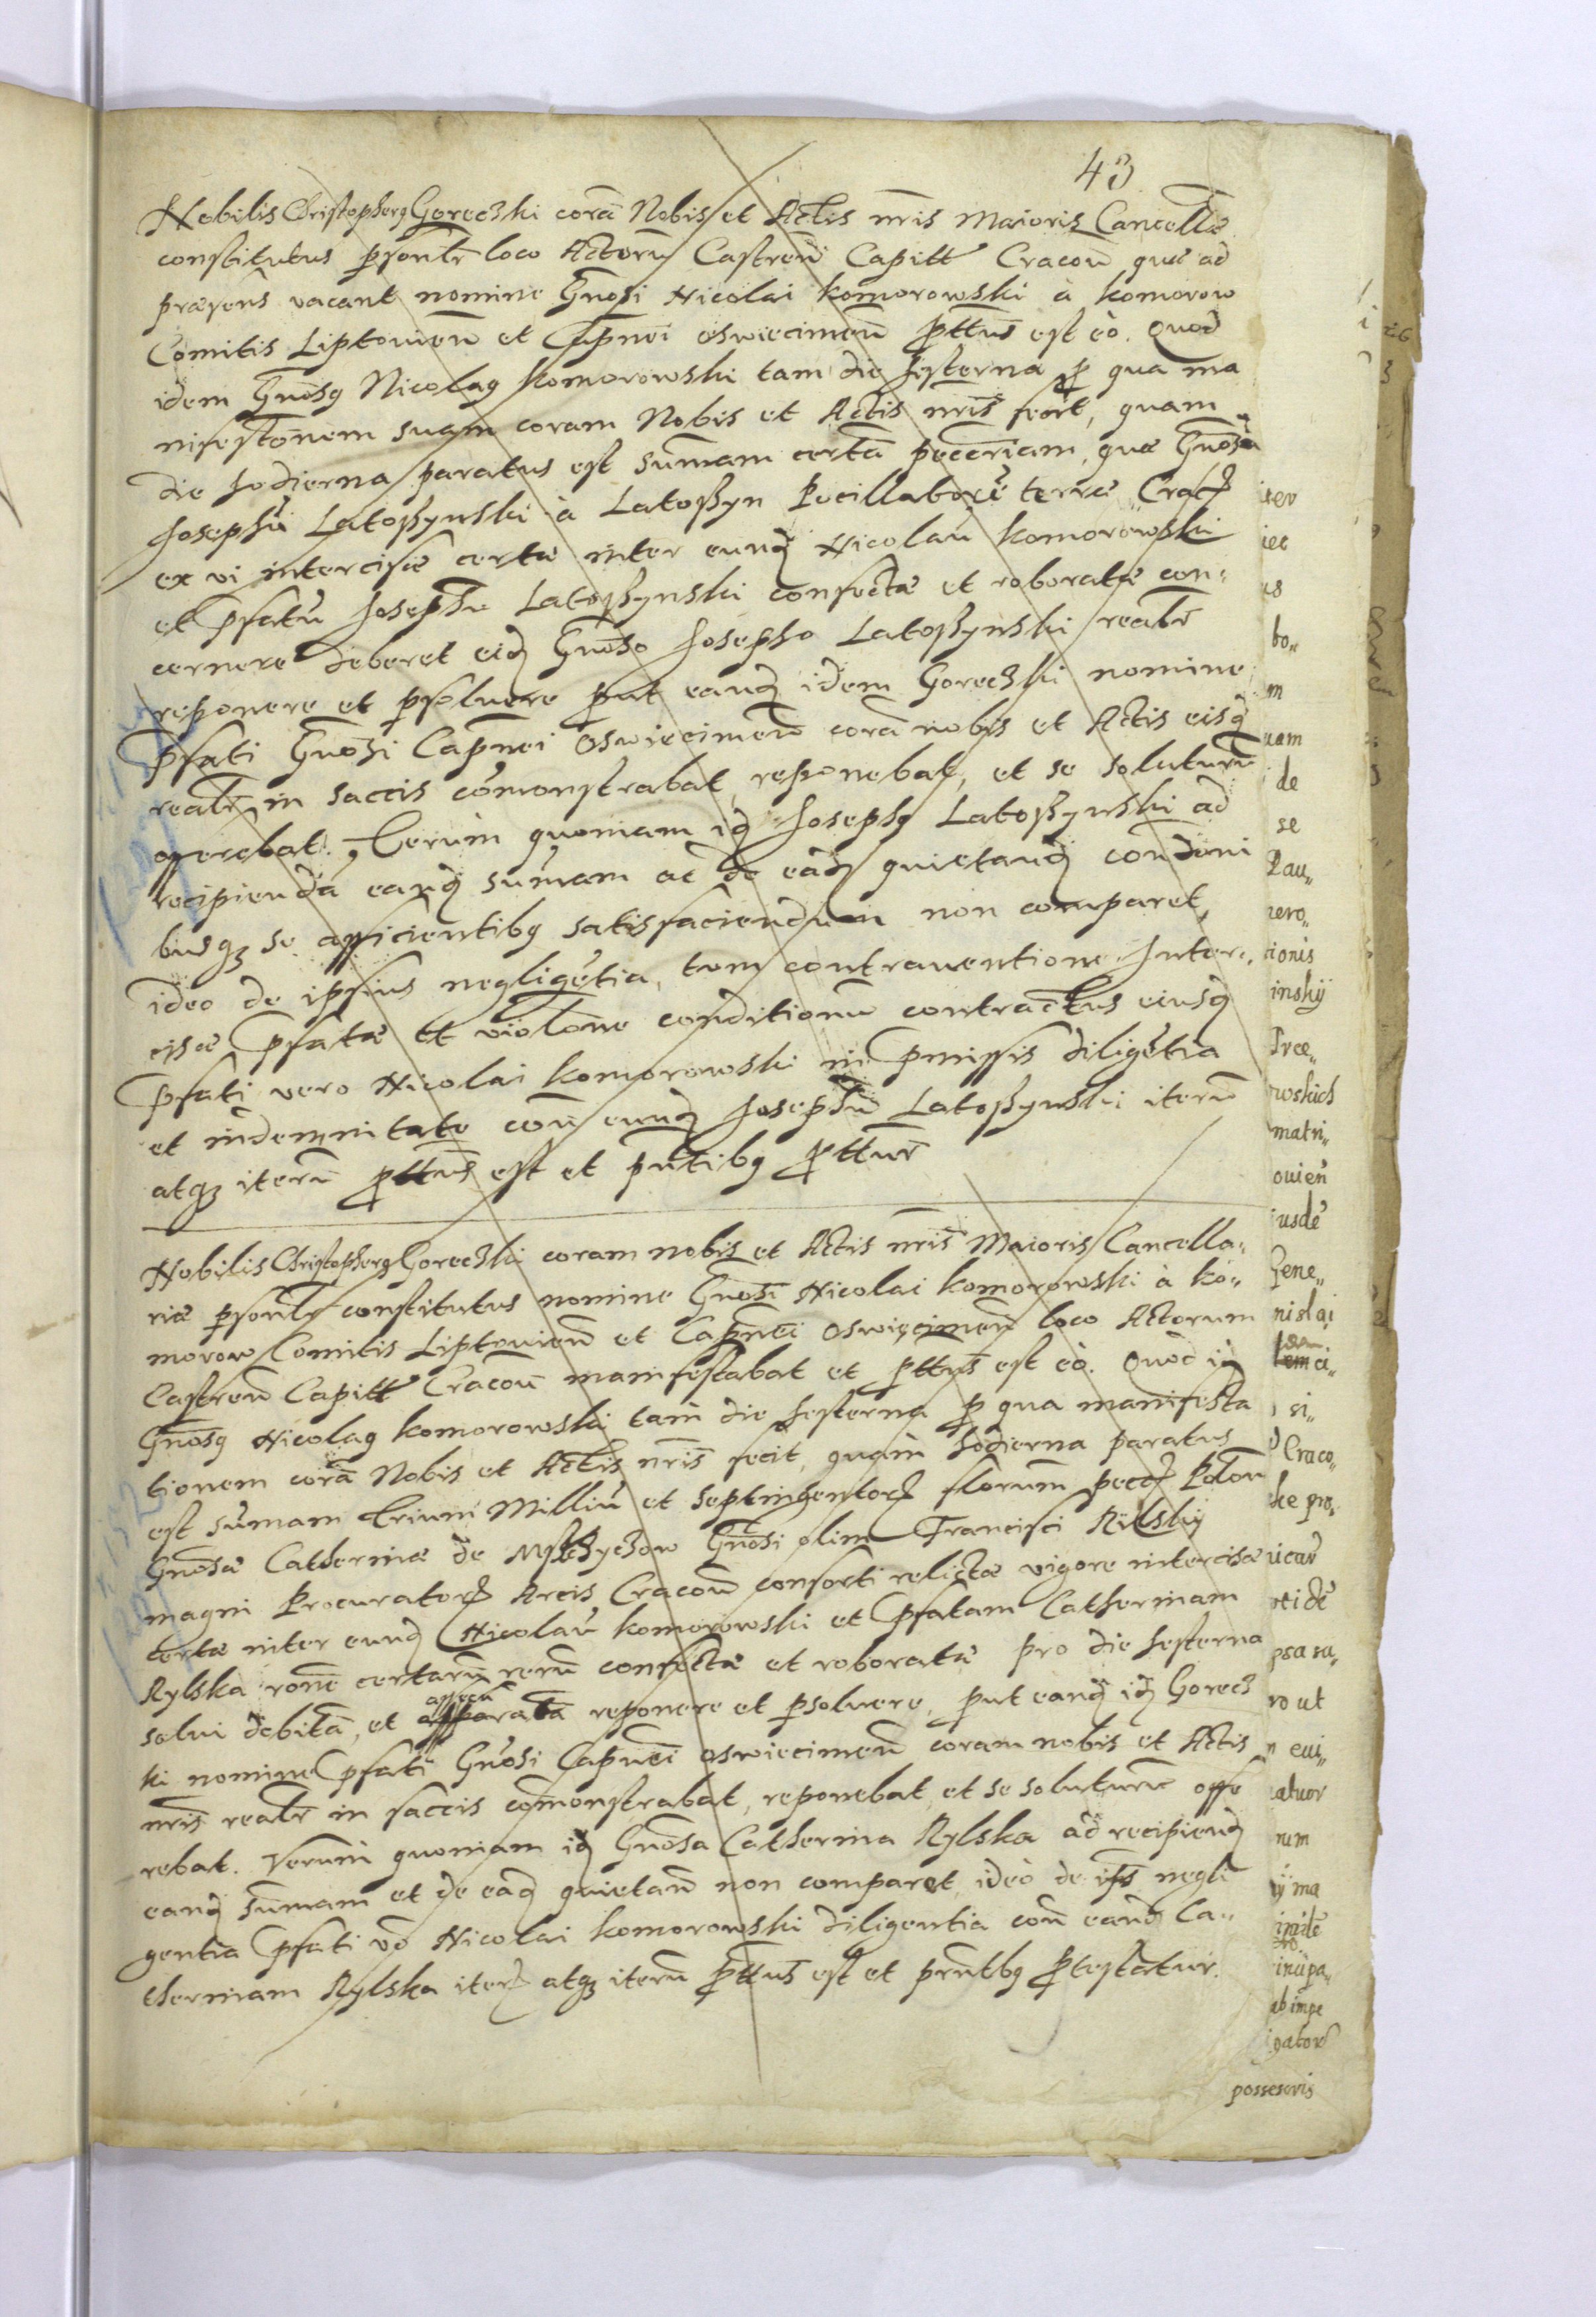 43
Nobilis Christopherꝯ Goreczki corā Nobis et Actis nr̄is Maioris Cancellæ
constitutus psonlr̄ loco Actorū Castren̄ Capitt Cracoun̄ quæ ad
præsens vacant nomine Gnosi Nicolai Komorowski à Komorow
Comitis Liptouien̄ et Capnei oswiecimen̄ pttus est eò. Quod
idem Gnosꝯ Nicolaꝯ Komorowski tam die hesterna p qua ma
nifestonem suam coram Nobis et Actis nr̄is fecit, quam
die hodierna paratus est sum̄am certā pecc̄riam, quæ
Josephū Latoszynski à Latoszyn Pocillatorē terræ Crac
ex vi intercisæ certæ inter eund Nicolaū Komorowski
et pfatū Josephū Latoszynski confectæ et roboratæ con„
cernere deberet eid Gnoso Josepho Latoszynski realr̄
reponere et psoluere put eand idem Goreczki nomine
pfati Gnosi Capnei oswiecimen̄ corā nobis et Actis eisd
realr̄ in saccis com̄onstrabat, reponebat, et se soluturū
offerebat. Verùm quoniam id Josephꝯ Latoszynski ad
recipiendā eand sum̄am ac de ead quietand condoni
busqꝫ se afficientibꝯ satisfaciendum non comparet,
ideo de ipsius negligētia, tum contrauentione Inter„
cisæ pfatæ et violōne conditionū contractus eiusd
pfati vero Nicolai Komorowski in pmissis diligētia
et indemnitate con̄ eund Josephū Latoszynski iterū
atqꝫ iterū pttus est et pn̄tibꝯ pttur
Nobilis Christopherꝯ Goreczki coram nobis et Actis nr̄is Maioris Cancella„
riæ psonlr̄ constitutus nomine Gnosi Nicolai Komorowski à Ko„
morow Comitis Liptouien̄ et Capnei oswięcimen̄ loco Actorum
Castren̄ Capitt Cracoun̄ manifestabat et pttus est eò. Quod id
Gnosꝯ Nicolaꝯ Komorowski tam die hesterna p qua manifesta
tionem corā Nobis et Actis nr̄is fecit, quàm hodierna paratus
est sum̄am Trium Milliū et septingentor florum pecc Polon
Gnosæ Catherinæ de Gnosi olim Francisci Rylskij
magni Procurator Arcis Cracoun̄ consorti relictæ vigore intercisæ
certæ inter eund Nicolaū Komorowski et pfatam Catherinam
Rylska rōne certarū rerū confectæ et roboratæ pro die hesterna
assecu
solui debitā, et ratā reponere et psoluere, put eand id Gorecz
ki nomine pfati Gnosi Capnei oswiecimen̄ coram nobis et Actis
nr̄is realr̄ in saccis com̄onstrabat, reponebat, et se soluturū offe
rebat. Verum quoniam id Gnosa Catherina Rylska ad recipiend
eand sum̄am et de ead quietan̄ non comparet, ideò de ipsꝰ negli
gentia pfati vo Nicolai Komorowski diligentia con̄ eand Ca„
therinam Rylska iter atqꝫ iterū pttus est et prn̄tibꝯ ptestatur.
bo„
uam
de
se
Pau„
nero„
tionis
inskij
Prae„
wskich
matri„
ouien̄
iusdē
Gene„
nislai
si„
Craco„
pro„
ro ut
eui„
num
ij ma
ab impe
possesoris